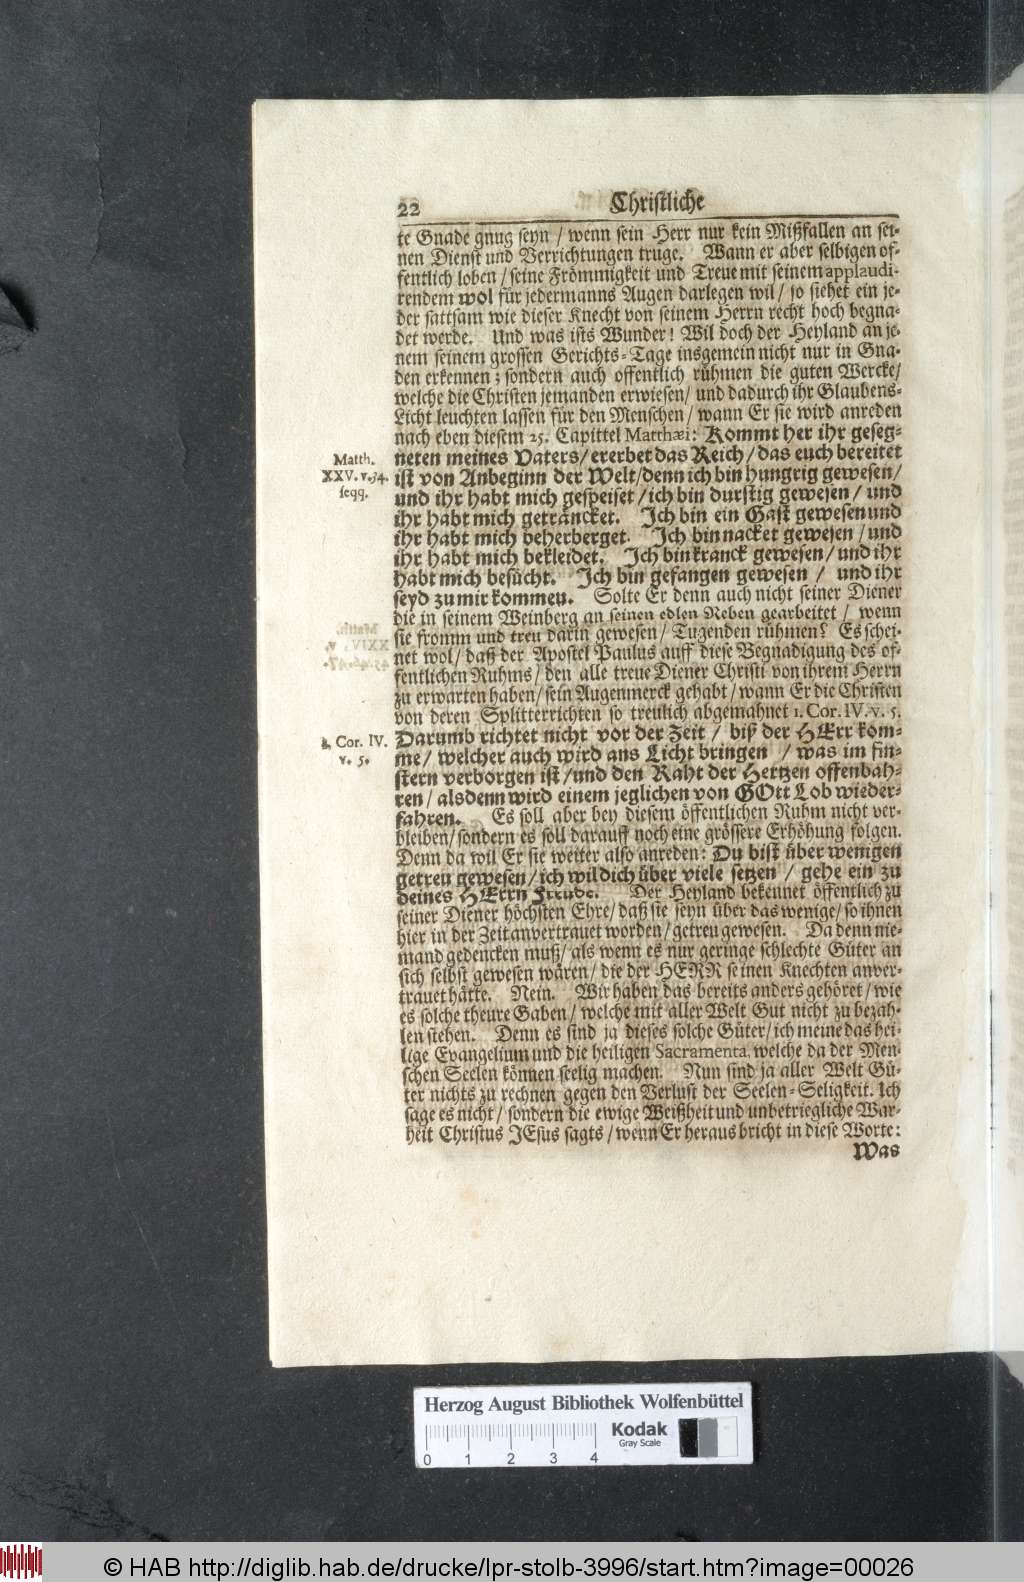 22
Christliche
te Gnade gnug seyn / wenn sein Herr nur kein Mißfallen an sei-
nen Dienst und Verrichtungen truge. Wann er aber selbigen of-
fentlich loben / seine Frömmigkeit und Treue mit seinem applaudi-
rendem wol für jedermanns Augen darlegen wil / so siehet ein je-
der sattsam wie dieser Knecht von seinem Herrn recht hoch begna-
det werde. Und was ists Wunder! Wil doch der Heyland an je-
nem seinem grossen Gerichts-Tage insgemein nicht nur in Gna-
den erkennen; sondern auch offentlich rühmen die guten Wercke/
welche die Christen jemanden erwiesen/ und dadurch ihr Glaubens-
Licht leuchten lassen für den Menschen/ wann Er sie wird anreden
nach eben diesem 25. Capittel Matthæi: Kommt her ihr geseg-
neten meines Vaters/ ererbet das Reich/ das euch bereitet
ist von Anbeginn der Welt/denn ich bin hungrig gewesen/
und ihr habt mich gespeiset/ich bin durstig gewesen/ und
ihr habt mich geträncket. Ich bin ein Gast gewesen und
ihr habt mich beherberget. Ich bin nacket gewesen/und
ihr habt mich bekleidet. Ich bin kranck gewesen/ und ihr
habt mich besücht. Ich bin gefangen gewesen / und ihr
seyd zu mir kommen. Solte Er denn auch nicht seiner Diener
die in seinem Weinberg an seinen edlen Reben gearbeitet / wenn
sie fromm und treu darin gewesen/ Tugenden rühmen? Es schei-
net wol/ daß der Apostel Paulus auff diese Begnadigung des of-
fentlichen Ruhms/ den alle treue Diener Christi von ihrem Herrn
zu erwarten haben/ sein Augenmerck gehabt/ wann Er die Christen
von deren Splitterrichten so treulich abgemahnet 1. Cor. IV. v. 5.
Darumb richtet nicht vor der Zeit / biß der HErr kom-
me/ welcher auch wird ans Licht bringen / was im fin-
stern verborgen ist /und den Raht der Hertzen offenbah-
ren / alsdenn wird einem jeglichen von GOtt Lob wieder-
fahren. Es soll aber bey diesem öffentlichen Ruhm nicht ver-
bleiben/sondern es soll darauff noch eine grössere Erhöhung folgen.
Denn da wil Er sie weiter also anreden: Du bist über wenigen
getreu gewesen/ich wil dich über viele setzen / gehe ein zu
deines HErrn Freude. Der Heyland bekennet öffentlich zu
seiner Diener höchsten Ehre/ daß sie seyn über das wenige/ so ihnen
hier in der Zeit anvertrauet worden/ getreu gewesen. Da denn nie-
mand gedencken muß/ als wenn es nur geringe schlechte Güter an
sich selbst gewesen wären/ die der HERR seinen Knechten anver-
trauet hätte. Nein. Wir haben das bereits anders gehöret/ wie
es solche theure Gaben/ welche mit aller Welt Gut nicht zu bezah-
len stehen. Denn es sind ja dieses solche Güter/ ich meine das hei-
lige Evangelium und die heiligen Sacramenta, welche da der Men-
schen Seelen können seelig machen. Nun sind ja aller Welt Gü-
ter nichts zu rechnen gegen den Verlust der Seelen-Seligkeit. Ich
sage es nicht/ sondern die ewige Weißheit und unbetriegliche War-
heit Christus JEsus sagts / wenn Er heraus bricht in diese Worte:
Was
Matth.
XXV. v. 34.
seqq.
Cor. IV.
v. 5.
Herzog August Bibliothek Wolfenbüttel
Kodak
Gray Scale
0 1 2 3 4
© HAB http://diglib.hab.de/drucke/lpr-stolb-3996/start.htm?image=00026